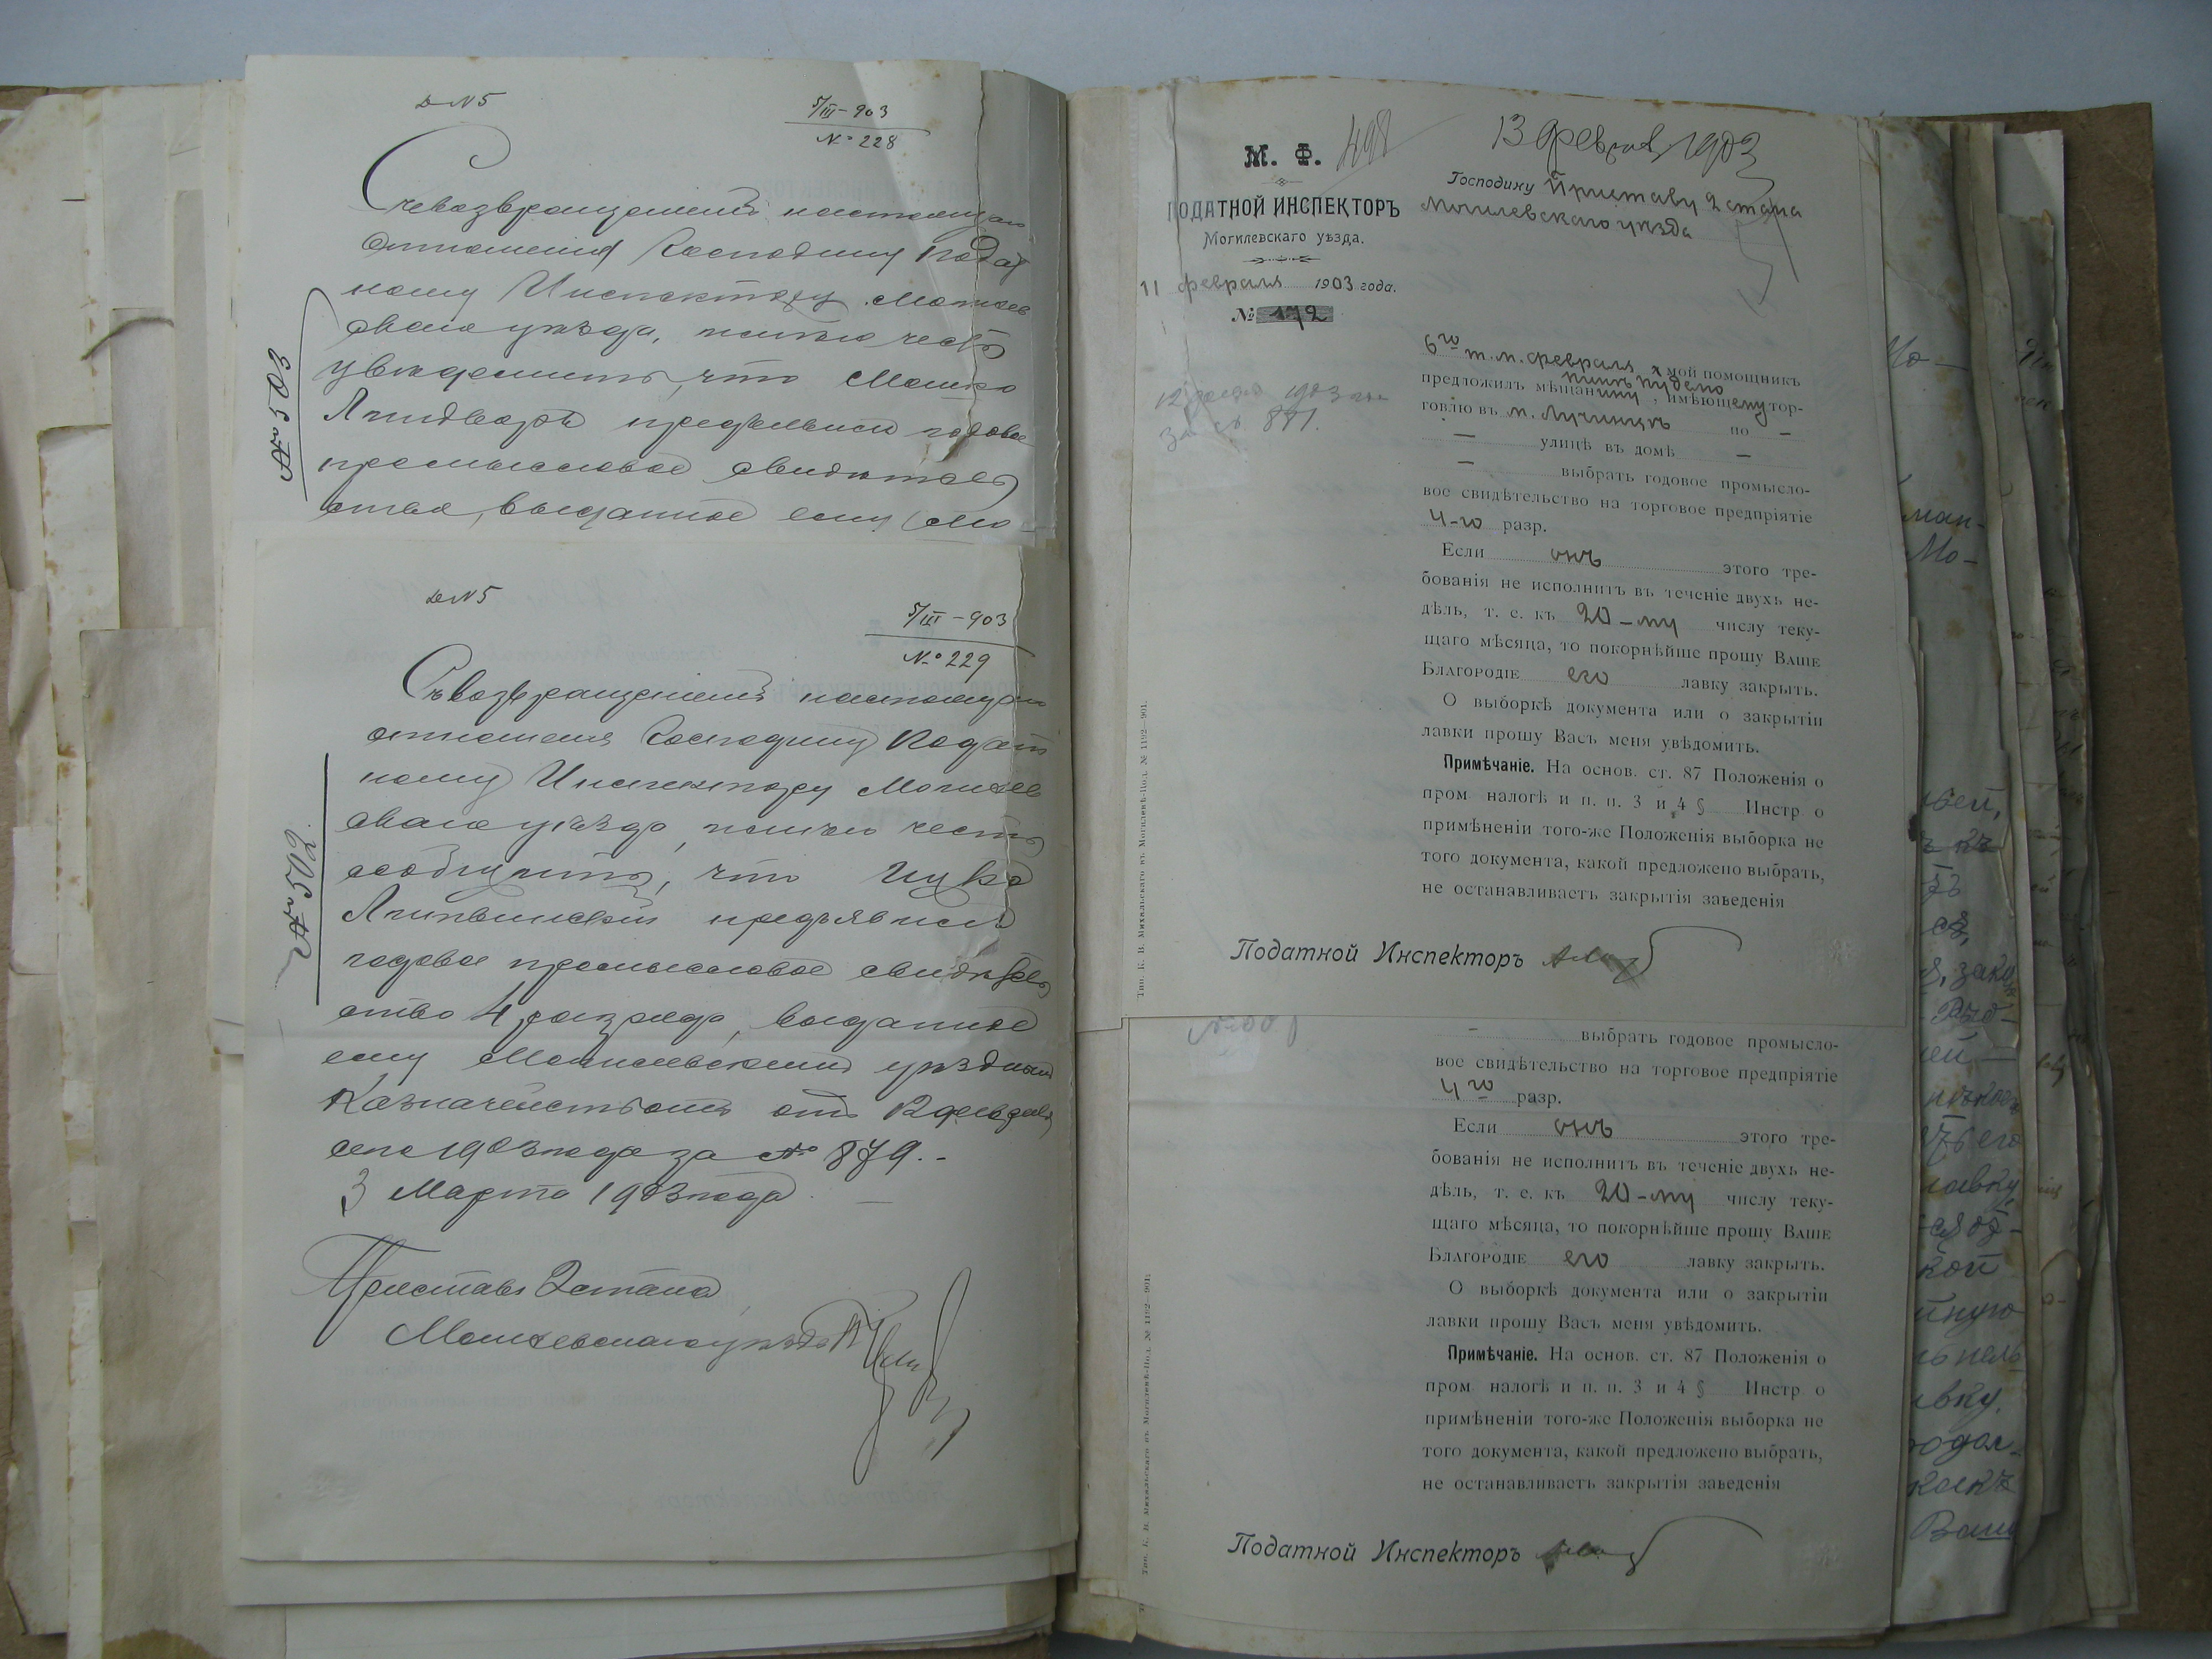 д N 5
5/III – 903
№ 228
Съ возвращеніемъ настоящаго
отношенія Господину Подат
ному Инспектору Могилев
скаго уѣзда, имѣю честь
увѣдомить, что Мошко
предъявилъ годовое
промысловое свидѣтель
ство, выданное ему Мо
№ 503
д N 5
5/III – 903
№ 229
Съ возвращеніемъ настоящаго
отношенія Господину Подат
ному Инспектору Могилев
скаго уѣзда, имѣю честь
сообщить, что Ицко
Литвинскій предъявилъ
годовое промысловое свидѣтель
ство 4 разряда, выданное
ему Могилевскимъ уѣзднымъ
Казначействомъ отъ 12 февраля
сего 1903 года за № 879.-
3 Марта 1903 года. —
Приставъ 2 стана
Могилевскаго уѣзда
№ 502.
М. Ф.
498
ПОДАТНОЙ ИНСПЕКТОРЪ
Могилевскаго уѣзда.
11 февраля 1903 года.
№ 172
13 февраля 1903
Господину Приставу 2 стана
Могилевскаго уѣзда
12 февр 1903
за № 871.
6го т. м. февраля мой помощникъ
предложилъ мѣщанину , имѣющему тор-
говлю въ м. Лучинцѣ по –
– улицѣ въ домѣ –
– выбрать годовое промысло-
вое свидѣтельство на торговое предпріятіе
4-го разр.
Если онъ этого тре-
бованія не исполнитъ въ теченіе двухъ не-
дѣль, т. е. къ 20-му числу теку-
щаго мѣсяца, то покорнѣйше прошу ВАШЕ
БЛАГОРОДІЕ его лавку закрыть.
О выборкѣ документа или о закрытіи
лавки прошу Васъ меня увѣдомить.
Примѣчаніе. На основ. ст. 87 Положенія о
пром налогѣ и п. п. 3 и 4 § Инстр о
примѣненіи того-же Положенія выборка не
того документа, какой предложено выбрать,
не останавливаетъ закрытія заведенія
Податной Инспекторъ
Тип. К. И. Михальскаго въ Могилевѣ-Под. № 1192—901.
– выбрать годовое промысло-
вое свидѣтельство на торговое предпріятіе
4го разр.
Если онъ этого тре-
бованія не исполнитъ въ теченіе двухъ не-
дѣль, т. е. къ 20-му числу теку-
щаго мѣсяца, то покорнѣйше прошу ВАШЕ
БЛАГОРОДІЕ его лавку закрыть.
О выборкѣ документа или о закрытіи
лавки прошу Васъ меня увѣдомить.
Примѣчаніе. На основ. ст. 87 Положенія о
пром налогѣ и п. п. 3 и 4 § Инстр о
примѣненіи того-же Положенія выборка не
того документа, какой предложено выбрать,
не останавливаетъ закрытія заведенія
Податной Инспекторъ
Тип. К. И. Михальскаго въ Могилевѣ-Под. № 1192—901.